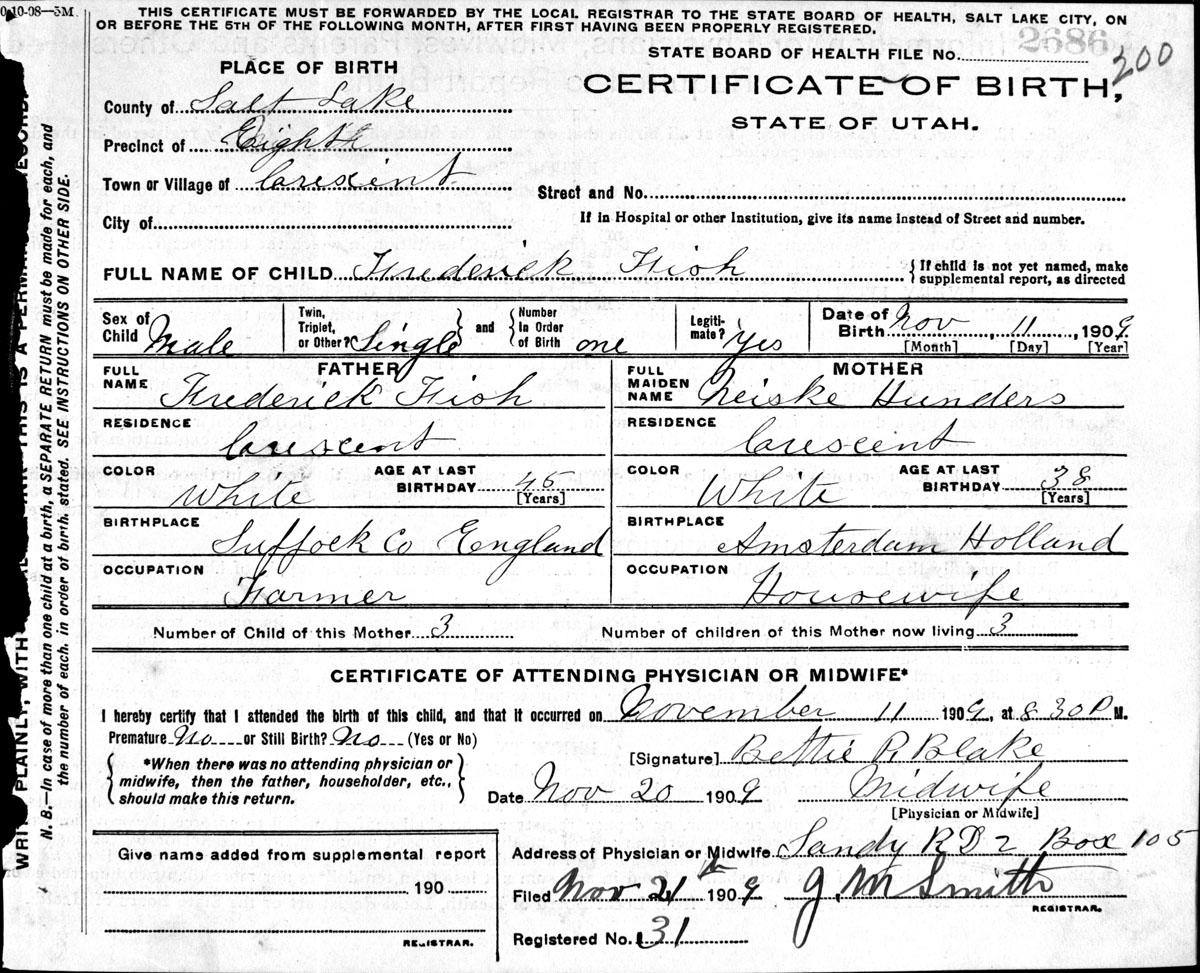 0-10-08—5M.
THIS CERTIFICATE MUST BE FORWARDED BY THE LOCAL REGISTRAR TO THE STATE BOARD OF HEALTH, SALT LAKE CITY, ON
OR BEFORE THE 5TH OF THE FOLLOWING MONTH, AFTER FIRST HAVING BEEN PROPERLY REGISTERED.
2686
STATE BOARD OF HEALTH FILE No.
200
CERTIFICATE OF BIRTH,
STATE OF UTAH.
PLACE OF BIRTH
County of Salt Lake
Precinct of Eighth
Town or Village of Crescent
Street and No.
City of
If in Hospital or other Institution, give its name instead of Street and number.
FULL NAME OF CHILD Frederick Fish { If child is not yet named, make
supplemental report, as directed
Sex of Child Male
Twin, Triplet, or Other? Single and Number In Order of Birth one
Legiti-mate? Yes
Date of Birth Nov 11, 1909
[Month] [Day] [Year]
FATHER
MOTHER
FULL NAME Frederick Fish
FULL MAIDEN NAME Neiske Hunders
RESIDENCE Crescent
RESIDENCE Crescent
COLOR White AGE AT LAST BIRTHDAY 45 [Years]
COLOR White AGE AT LAST BIRTHDAY 38 [Years]
BIRTHPLACE Suffock Co England
BIRTHPLACE Amsterdam Holland
OCCUPATION Farmer
OCCUPATION Housewife
Number of Child of this Mother 3
Number of children of this Mother now living 3
CERTIFICATE OF ATTENDING PHYSICIAN OR MIDWIFE*
I hereby certify that I attended the birth of this child, and that it occurred on November 11 1909, at 8 30 P M.
Premature No or Still Birth? No (Yes or No)
*When there was no attending physician or
midwife, then the father, householder, etc.,
should make this return.
[Signature] Bettie P. Blake
Date Nov 20 1909 Midwife
[Physician or Midwife]
Address of Physician or Midwife Sandy RD 2 Box 105
Filed Nov 21th 1909 J. M Smith
REGISTRAR.
Registered No. 31
Give name added from supplemental report
190
REGISTRAR.
WRITE PLAINLY, WITH THIS IS A PERMANENT RECORD.
N. B.—In case of more than one child at a birth, a SEPARATE RETURN must be made for each, and
the number of each, in order of birth, stated. SEE INSTRUCTIONS ON OTHER SIDE.